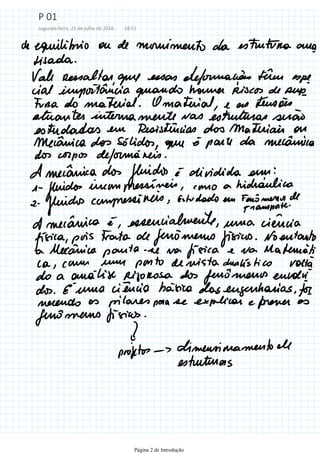 P 01
segunda-feira, 25 de julho de 2016 18:51
de equilíbrio ou de movimento da estrutura ana
lisada.
Vale ressaltar, que essas deformações têm espe
cial importância quando houver riscos de rup
tura do material. O material, e as tensões
atuantes internamente nas estruturas serão
estudadas em Resistências dos Materiais ou
Mecânica dos Sólidos, que é parte da mecânica
dos corpos deformáveis.
A mecânica dos fluidos é dividida em:
1- fluidos incompressíveis, como a hidráulica
2- fluidos compressíveis, estudado em Fenômenos de
transporte.
A mecânica é, essencialmente, uma ciência
física, pois trata de fenômeno físico. No entanto
a Mecânica pauta-se na física e na Matemáti
ca, com um ponto de vista dualístico volta
do a análise rigorosa dos fenômenos envolvi
dos. É uma ciência básica das engenharias, for
necendo os pilares para se explicar e prever os
fenômenos físicos.
projetos → dimensionamento de
estruturas
Página 2 de Introdução